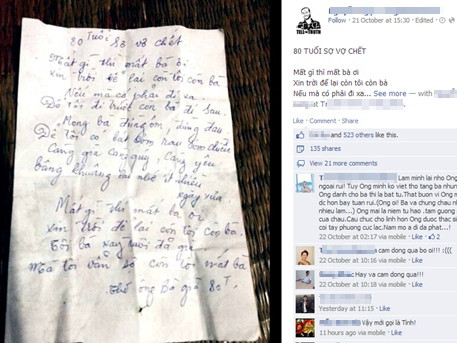 80 TUỔI Sợ vợ chết
Mất gì thì mất bà ơi
xin trời để lại còn tôi còn bà
Nếu mà có phải đi xa
Để tôi đi trước còn bà đi sau.
Mong bà đừng ốm đừng đau
Để tôi có bát cơm rau sớm chiều
Càng già càng quý, càng yêu
bâng khuâng lại nhớ
ngày xưa
Mất gì thì mất bà ơi
xin trời để lại còn tôi còn bà.
Tôi bà nay tuổi đã
Mà tôi vẫn sợ còn tôi mất bà
Thơ ông Đồ già 80T.
TELL the TRUTH
Follow · 21 October at 15:30 · Edited
80 TUỔI SỢ VỢ CHẾT
Mất gì thì mất bà ơi
Xin trời để lại còn tôi còn bà
Nếu mà có phải đi xa... See more — with
at
Like · Comment · Share
and 523 others like this.
135 shares
View 21 more comments
Lam minh lai nho Ong
ngoai rui! Tuy Ong minh ko viet tho tang ba nhung
Ong danh cho ba thi la bat tu.That buon vi Ong m
dc hon bay tuan rui.(Ong oi! Ba va chung chau nh
nhieu lam...) Ong mai la niem tu hao .tam guong
cua chau.Cau chuc cho linh hon Ong duoc thac sin
coi tay phuong cuc lac.Nam mo a di da phat...!
22 October at 02:17 via mobile · Like · 2
cam dong qua ba oi!!! :(((
22 October at 10:16 via mobile · Like
Hay va cam dong qua!!!
22 October at 10:18 via mobile · Like
Yesterday at 11:15 · Like
Vậy mới gọi là Tình!
11 hours ago via mobile · Like